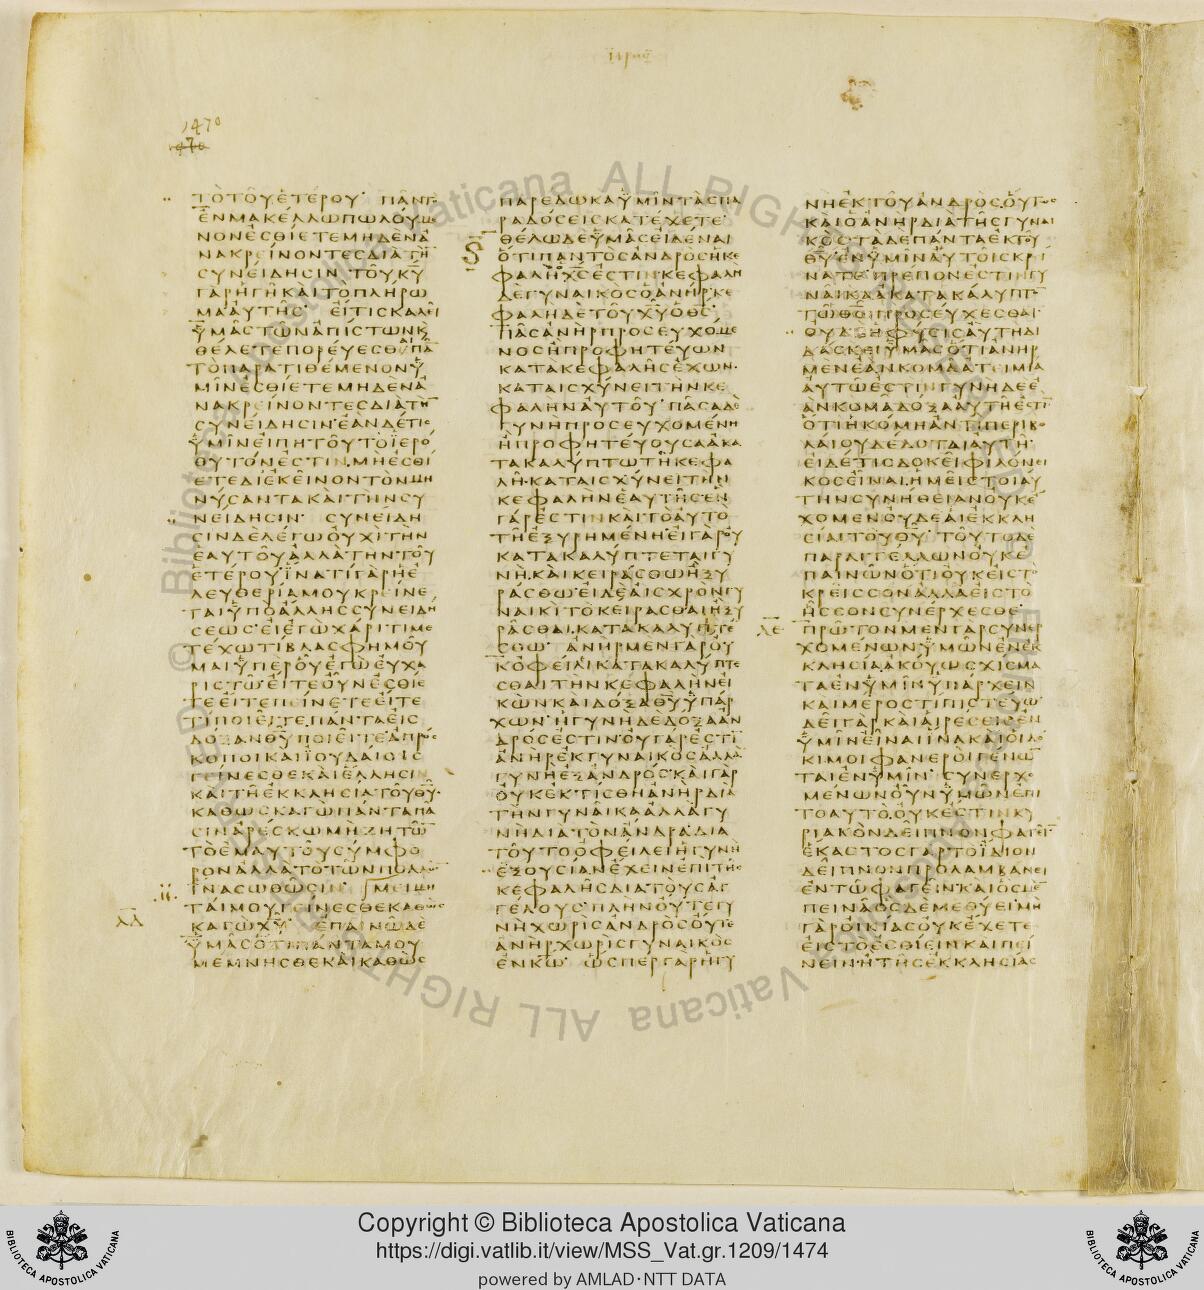 1470
ΤΟΤΟΥΕΤΕΡΟΥ ΠΑΝΤΟ
ΕΝΜΑΚΕΛΛΩΠΩΛΟΥΜΕ
ΝΟΝΕΣΘΙΕΤΕΜΗΔΕΝΑ
ΝΑΚΡΕΙΝΟΝΤΕΣΔΙΑΤΗ
ΣΥΝΕΙΔΗΣΙΝ ΤΟΥΚΥ
ΓΑΡΗΓΗΚΑΙΤΟΠΛΗΡΩ
ΜΑΑΥΤΗΣ ΕΙΤΙΣΚΑΛΕΙ
ΥΜΑΣΤΩΝΑΠΙΣΤΩΝΚ
ΘΕΛΕΤΕΠΟΡΕΥΕΣΘΑΙΠΑ
ΤΟΠΑΡΑΤΙΘΕΜΕΝΟΝΥ
ΜΙΝΕΣΘΙΕΤΕΜΗΔΕΝΑ
ΝΑΚΡΕΙΝΟΝΤΕΣΔΙΑΤΗΝ
ΣΥΝΕΙΔΗΣΙΝΕΑΝΔΕΤΙΣ
ΥΜΙΝΕΙΠΗΤΟΥΤΟΙΕΡΟ
ΘΥΤΟΝΕΣΤΙΝΜΗΕΣΘΙ
ΕΤΕΔΙΕΚΕΙΝΟΝΤΟΝΜΗ
ΝΥΣΑΝΤΑΚΑΙΤΗΝΣΥ
ΝΕΙΔΗΣΙΝ ΣΥΝΕΙΔΗ
ΣΙΝΔΕΛΕΓΩΟΥΧΙΤΗΝ
ΕΑΥΤΟΥΑΛΛΑΤΗΝΤΟΥ
ΕΤΕΡΟΥΙΝΑΤΙΓΑΡΗΕ
ΛΕΥΘΕΡΙΑΜΟΥΚΡΕΙΝΕ
ΤΑΙΥΠΟΑΛΛΗΣΣΥΝΕΙΔΗ
ΣΕΩΣΕΙΕΓΩΧΑΡΙΤΙΜΕ
ΤΕΧΩΤΙΒΛΑΣΦΗΜΟΥ
ΜΑΙΥΠΕΡΟΥΕΓΩΕΥΧΑ
ΡΙΣΤΩΕΙΤΕΟΥΝΕΣΘΙΕ
ΤΕΕΙΤΕΠΕΙΝΕΤΕΕΙΤΕ
ΤΙΠΟΙΕΙΤΕΠΑΝΤΑΕΙΣ
ΔΟΞΑΝΘΥΠΟΙΕΙΤΕΑΠΡΟΣ
ΚΟΠΟΙΚΑΙΙΟΥΔΑΙΟΙΣ
ΓΕΙΝΕΣΘΕΚΑΙΕΛΛΗΣΙΝ
ΚΑΙΤΗΕΚΚΛΗΣΙΑΤΟΥΘΥ
ΚΑΘΩΣΚΑΓΩΠΑΝΤΑΠΑ
ΣΙΝΑΡΕΣΚΩΜΗΖΗΤΩ
ΤΟΕΜΑΥΤΟΥΣΥΜΦΟ
ΡΟΝΑΛΛΑΤΟΤΩΝΠΟΛΛΩ
ΙΝΑΣΩΘΩΣΙΝ ΜΕΙΜΗ
ΤΑΙΜΟΥΓΕΙΝΕΣΘΕΚΑΘΩΣ
ΛΑ
ΚΑΓΩΧΥ ΕΠΑΙΝΩΔΕ
ΥΜΑΣΟΤΙΠΑΝΤΑΜΟΥ
ΜΕΜΝΗΣΘΕΚΑΙΚΑΘΩΣ
ΠΑΡΕΔΩΚΑΥΜΙΝΤΑΣΠΑ
ΡΑΔΟΣΕΙΣΚΑΤΕΧΕΤΕ
ΘΕΛΩΔΕΥΜΑΣΕΙΔΕΝΑΙ
ΟΤΙΠΑΝΤΟΣΑΝΔΡΟΣΗΚΕ
ΦΑΛΗΟΧΣΕΣΤΙΝΚΕΦΑΛΗ
ΔΕΓΥΝΑΙΚΟΣΟΑΝΗΡΚΕ
ΦΑΛΗΔΕΤΟΥΧΥΟΘΣ
ΠΑΣΑΝΗΡΠΡΟΣΕΥΧΟΜΕ
ΝΟΣΗΠΡΟΦΗΤΕΥΩΝ
ΚΑΤΑΚΕΦΑΛΗΣΕΧΩΝ
ΚΑΤΑΙΣΧΥΝΕΙΤΗΝΚΕ
ΦΑΛΗΝΑΥΤΟΥΠΑΣΑΔΕ
ΓΥΝΗΠΡΟΣΕΥΧΟΜΕΝΗ
ΗΠΡΟΦΗΤΕΥΟΥΣΑΑΚΑ
ΤΑΚΑΛΥΠΤΩΤΗΚΕΦΑ
ΛΗΚΑΤΑΙΣΧΥΝΕΙΤΗΝ
ΚΕΦΑΛΗΝΕΑΥΤΗΣΕΝ
ΓΑΡΕΣΤΙΝΚΑΙΤΟΑΥΤΟ
ΤΗΕΞΥΡΗΜΕΝΗΕΙΓΑΡΟΥ
ΚΑΤΑΚΑΛΥΠΤΕΤΑΙΓΥ
ΝΗΚΑΙΚΕΙΡΑΣΘΩΗΞΥ
ΡΑΣΘΩΕΙΔΕΑΙΣΧΡΟΝΓΥ
ΝΑΙΚΙΤΟΚΕΙΡΑΣΘΑΙΗΞΥ
ΡΑΣΘΑΙΚΑΤΑΚΑΛΥΠΤΕ
ΣΘΩ ΑΝΗΡΜΕΝΓΑΡΟΥ
ΚΟΦΕΙΛΕΙΚΑΤΑΚΑΛΥΠΤΕ
ΣΘΑΙΤΗΝΚΕΦΑΛΗΝΕΙ
ΚΩΝΚΑΙΔΟΞΑΘΥΥΠΑΡ
ΧΩΝΗΓΥΝΗΔΕΔΟΞΑΑΝ
ΔΡΟΣΕΣΤΙΝΟΥΓΑΡΕΣΤΙ
ΑΝΗΡΕΚΓΥΝΑΙΚΟΣΑΛΛΑ
ΓΥΝΗΕΞΑΝΔΡΟΣΚΑΙΓΑΡ
ΟΥΚΕΚΤΙΣΘΗΑΝΗΡΔΙΑ
ΤΗΝΓΥΝΑΙΚΑΑΛΛΑΓΥ
ΝΗΔΙΑΤΟΝΑΝΔΡΑΔΙΑ
ΤΟΥΤΟΟΦΕΙΛΕΙΗΓΥΝΗ
ΕΞΟΥΣΙΑΝΕΧΕΙΝΕΠΙΤΗΣ
ΚΕΦΑΛΗΣΔΙΑΤΟΥΣΑΓ
ΓΕΛΟΥΣΠΛΗΝΟΥΤΕΓΥ
ΝΗΧΩΡΙΣΑΝΔΡΟΣΟΥΤΕ
ΑΝΗΡΧΩΡΙΣΓΥΝΑΙΚΟΣ
ΕΝΚΩ ΩΣΠΕΡΓΑΡΗΓΥ
ΝΗΕΚΤΟΥΑΝΔΡΟΣΟΥΤΩΣ
ΚΑΙΟΑΝΗΡΔΙΑΤΗΣΓΥΝΑΙ
ΚΟΣΤΑΔΕΠΑΝΤΑΕΚΤΟΥ
ΘΥΕΝΥΜΙΝΑΥΤΟΙΣΚΡΙ
ΝΑΤΕΠΡΕΠΟΝΕΣΤΙΝΓΥ
ΝΑΙΚΑΑΚΑΤΑΚΑΛΥΠΤ
ΤΩΘΩΠΡΟΣΕΥΧΕΣΘΑΙ
ΟΥΔΕΗΦΥΣΙΣΑΥΤΗΔΙ
ΔΑΣΚΕΙΥΜΑΣΟΤΙΑΝΗΡ
ΜΕΝΕΑΝΚΟΜΑΑΤΕΙΜΙΑ
ΑΥΤΩΕΣΤΙΝΓΥΝΗΔΕΕ
ΑΝΚΟΜΑΔΟΞΑΑΥΤΗΕΣΤΙ
ΟΤΙΗΚΟΜΗΑΝΤΙΠΕΡΙΒΟ
ΛΑΙΟΥΔΕΔΟΤΑΙΑΥΤΗ
ΕΙΔΕΤΙΣΔΟΚΕΙΦΙΛΟΝΕΙ
ΚΟΣΕΙΝΑΙΗΜΕΙΣΤΟΙΑΥ
ΤΗΝΣΥΝΗΘΕΙΑΝΟΥΚΕ
ΧΟΜΕΝΟΥΔΕΑΙΕΚΚΛΗ
ΣΙΑΙΤΟΥΘΥ ΤΟΥΤΟΔΕ
ΠΑΡΑΓΓΕΛΛΩΝΟΥΚΕ
ΠΑΙΝΩΝΟΤΙΟΥΚΕΙΣΤΟ
ΚΡΕΙΣΣΟΝΑΛΛΑΕΙΣΤΟ
ΗΣΣΟΝΣΥΝΕΡΧΕΣΘΕ
ΛΕ
ΠΡΩΤΟΝΜΕΝΓΑΡΣΥΝΕΡ
ΧΟΜΕΝΩΝΥΜΩΝΕΝΕΚ
ΚΛΗΣΙΑΑΚΟΥΩΣΧΙΣΜΑ
ΤΑΕΝΥΜΙΝΥΠΑΡΧΕΙΝ
ΚΑΙΜΕΡΟΣΤΙΠΙΣΤΕΥΩ
ΔΕΙΓΑΡΚΑΙΑΙΡΕΣΕΙΣΕΝ
ΥΜΙΝΕΙΝΑΙΙΝΑΚΑΙΟΙΔΟ
ΚΙΜΟΙΦΑΝΕΡΟΙΓΕΝΩ
ΤΑΙΕΝΥΜΙΝ ΣΥΝΕΡΧΟ
ΜΕΝΩΝΟΥΝΥΜΩΝΕΠΙ
ΤΟΑΥΤΟΟΥΚΕΣΤΙΝΚΥ
ΡΙΑΚΟΝΔΕΙΠΝΟΝΦΑΓΕΙ
ΕΚΑΣΤΟΣΓΑΡΤΟΙΔΙΟΝ
ΔΕΙΠΝΟΝΠΡΟΛΑΜΒΑΝΕΙ
ΕΝΤΩΦΑΓΕΙΝΚΑΙΟΣΜΕ
ΠΕΙΝΑΟΣΔΕΜΕΘΥΕΙΜΗ
ΓΑΡΟΙΚΙΑΣΟΥΚΕΧΕΤΕ
ΕΙΣΤΟΕΣΘΙΕΙΝΚΑΙΠΕΙ
ΝΕΙΝΗΤΗΣΕΚΚΛΗΣΙΑΣ
Copyright © Biblioteca Apostolica Vaticana
https://digi.vatlib.it/view/MSS_Vat.gr.1209/1474
powered by AMLAD·NTT DATA